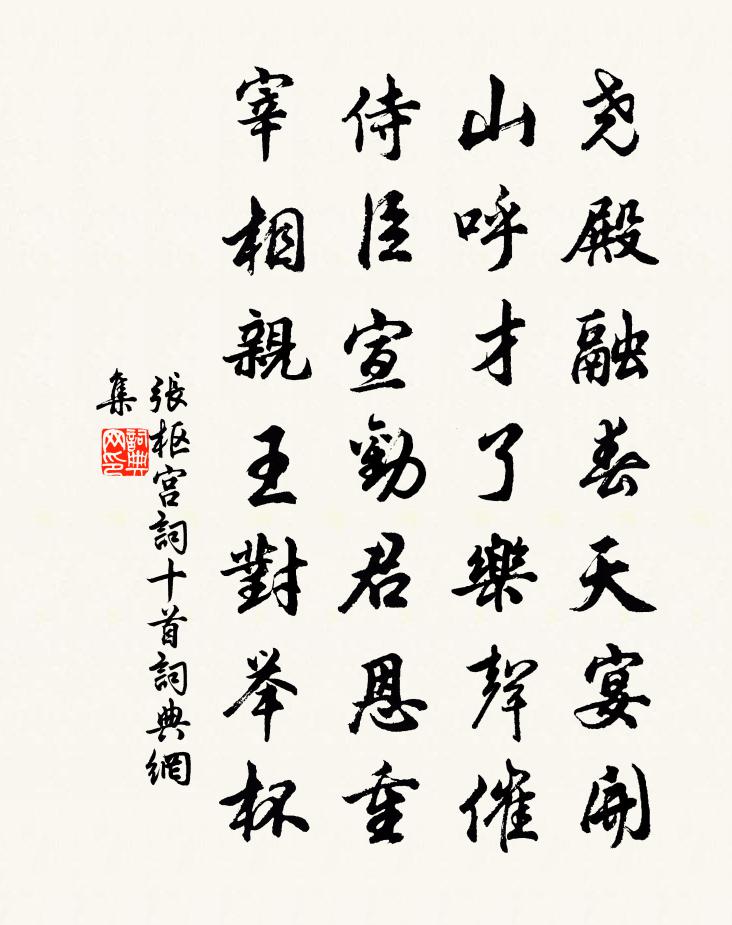 尧殿融春天宴開
山呼才了樂聲催
侍臣宣勸君恩重
宰相親王對举杯
張枢宫詞十首詞典網
集
詞典
网印